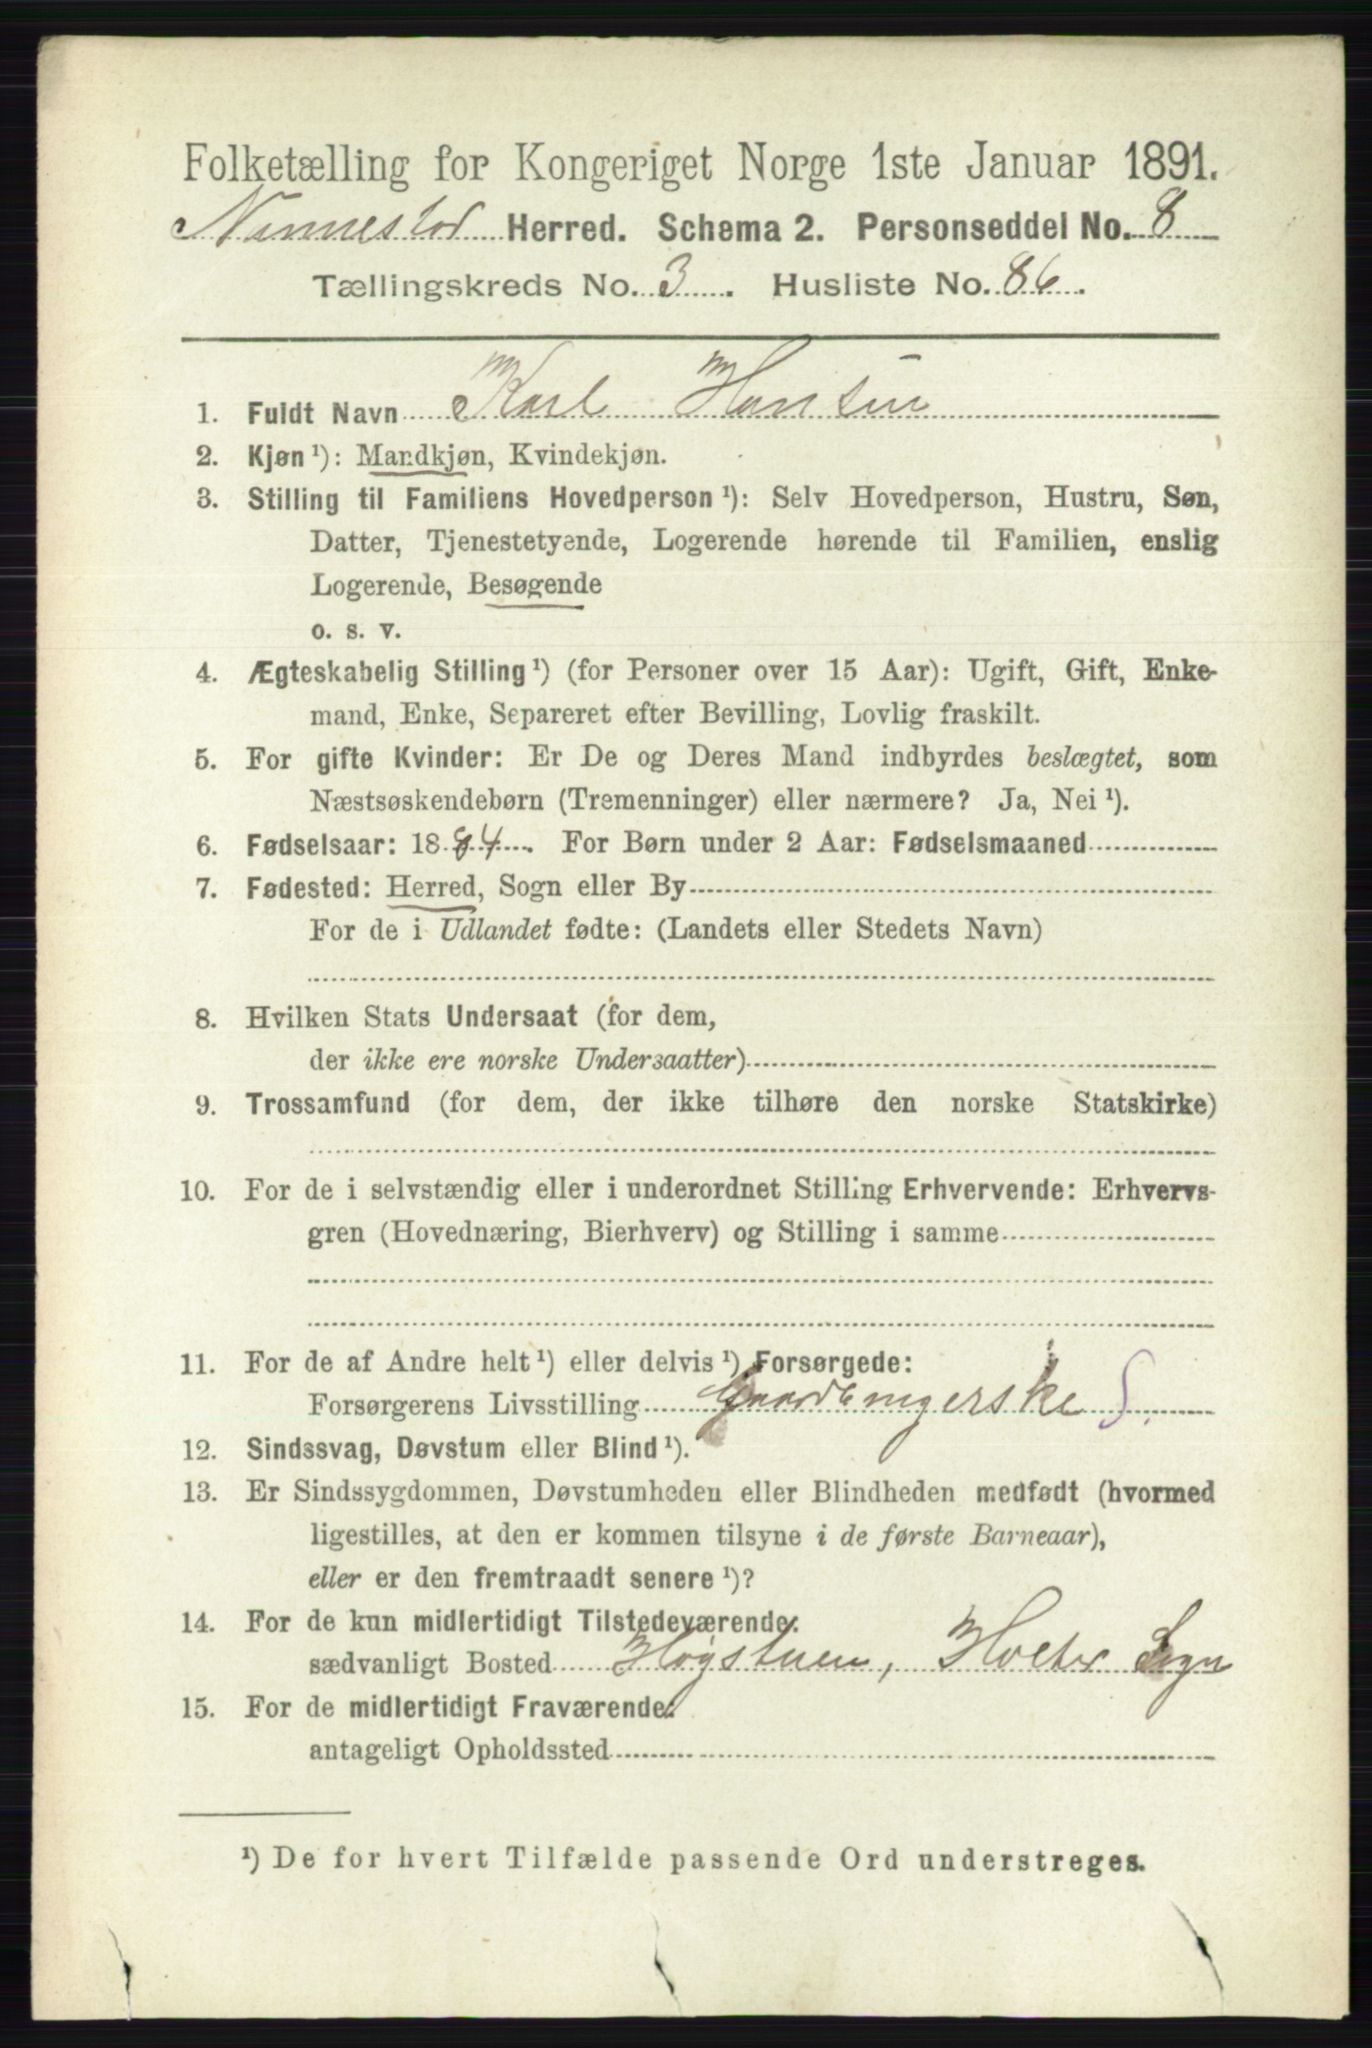 Folketælling for Kongeriget Norge 1ste Januar 1891.
Nannestad Herred. Schema 2. Personseddel No. 8
Tællingskreds No. 3. Husliste No. 86.
1. Fuldt Navn Karl Hansen
2. Kjøn ¹): Mandkjøn, Kvindekjøn.
3. Stilling til Familiens Hovedperson ¹): Selv Hovedperson, Hustru, Søn,
Datter, Tjenestetyende, Logerende hørende til Familien, enslig
Logerende, Besøgende
o. s. v.
4. Ægteskabelig Stilling ¹) (for Personer over 15 Aar): Ugift, Gift, Enke-
mand, Enke, Separeret efter Bevilling, Lovlig fraskilt.
5. For gifte Kvinder: Er De og Deres Mand indbyrdes beslægtet, som
Næstsøskendebørn (Tremenninger) eller nærmere? Ja, Nei ¹).
6. Fødselsaar: 1884. For Børn under 2 Aar: Fødselsmaaned
7. Fødested: Herred, Sogn eller By
For de i Udlandet fødte: (Landets eller Stedets Navn)
8. Hvilken Stats Undersaat (for dem,
der ikke ere norske Undersaatter)
9. Trossamfund (for dem, der ikke tilhøre den norske Statskirke)
10. For de i selvstændig eller i underordnet Stilling Erhvervende: Erhvervs-
gren (Hovednæring, Bierhverv) og Stilling i samme
11. For de af Andre helt ¹) eller delvis ¹) Forsørgede:
Forsørgerens Livsstilling Gaardbrugerske S.
12. Sindssvag, Døvstum eller Blind ¹).
13. Er Sindssygdommen, Døvstumheden eller Blindheden medfødt (hvormed
ligestilles, at den er kommen tilsyne i de første Barneaar),
eller er den fremtraadt senere ¹)?
14. For de kun midlertidigt Tilstedeværende:
sædvanligt Bosted Høgstuen, Holter Sogn
15. For de midlertidigt Fraværende:
antageligt Opholdssted
¹) De for hvert Tilfælde passende Ord understreges.